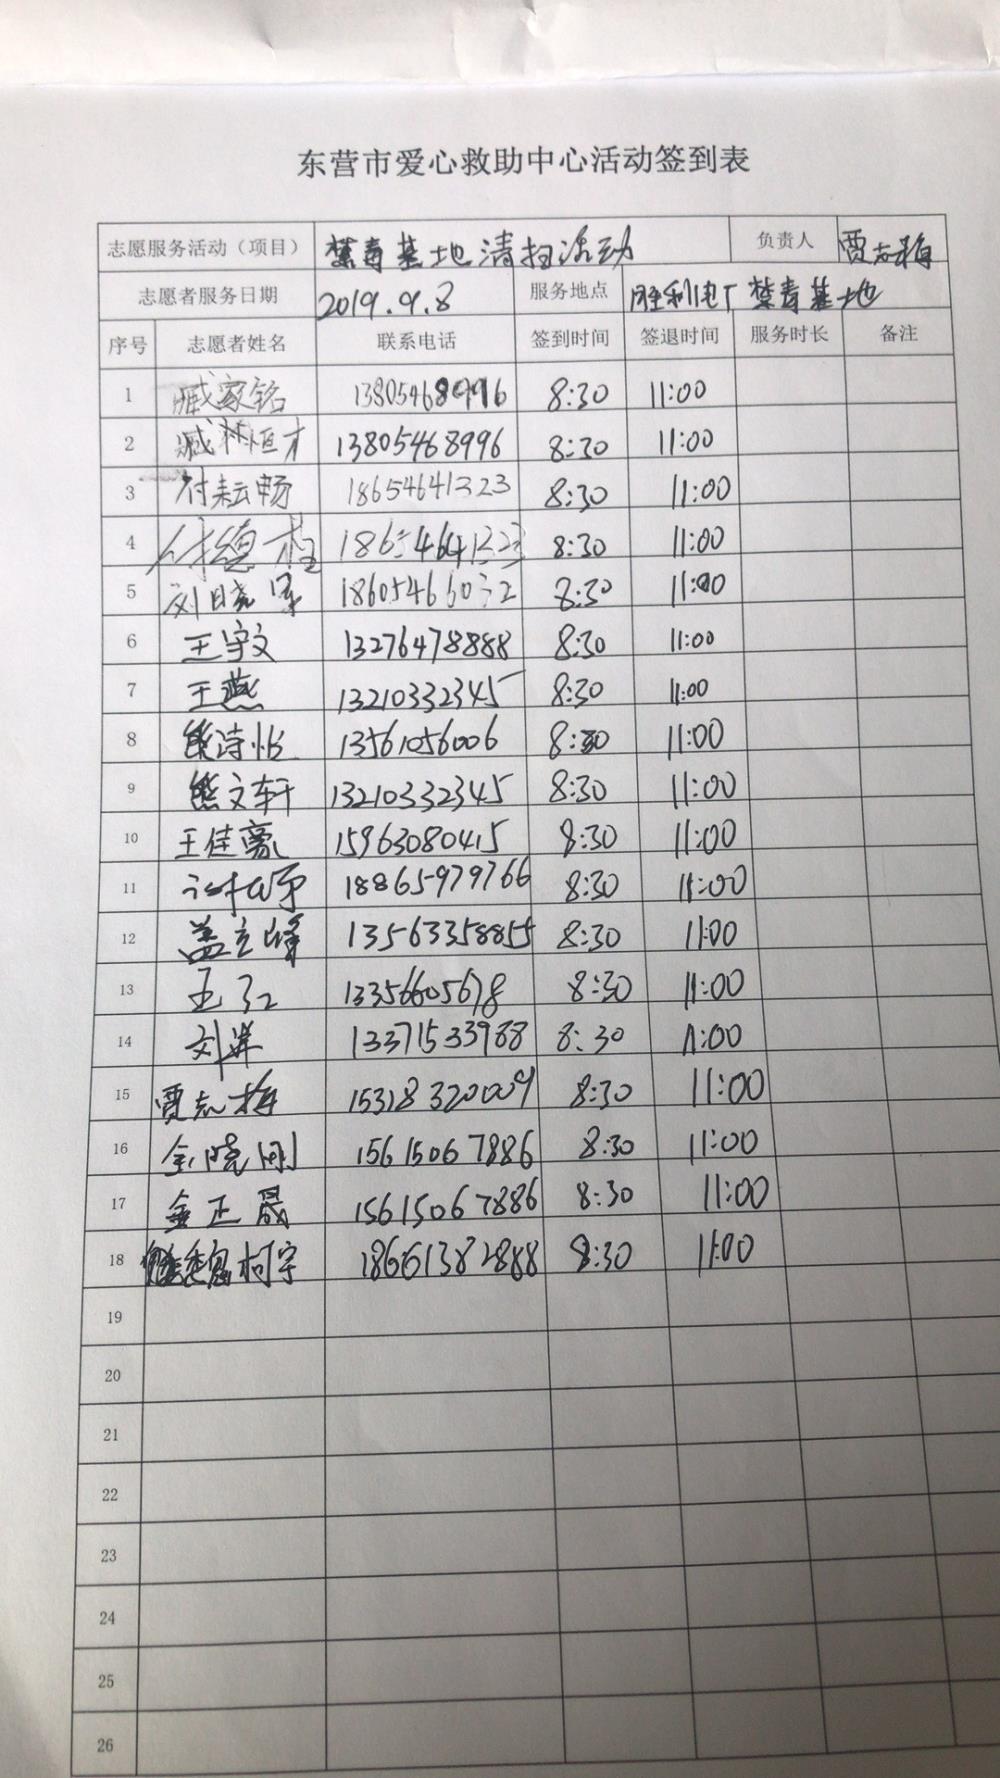 东营市爱心救助中心活动签到表
志愿服务活动（项目） 禁毒基地清扫活动 负责人 贾志梅
志愿者服务日期 2019.9.8 服务地点 胜利电厂禁毒基地
序号 志愿者姓名 联系电话 签到时间 签退时间 服务时长 备注
1 臧家铭 13805468996 8:30 11:00
2 臧恒才 13805468996 8:30 11:00
3 付耘畅 18654641323 8:30 11:00
4 付德柱 18654641323 8:30 11:00
5 刘晓军 18605466032 8:30 11:00
6 王宇文 13276478888 8:30 11:00
7 王燕 13210332345 8:30 11:00
8 熊诗怡 13561056006 8:30 11:00
9 熊文轩 13210332345 8:30 11:00
10 王佳豪 15963080415 8:30 11:00
11 18865979766 8:30 11:00
12 盖立峰 13563358855 8:30 11:00
13 13356605678 8:30 11:00
14 刘洋 13371533988 8:30 11:00
15 贾志梅 15318320009 8:30 11:00
16 金晓刚 15615067886 8:30 11:00
17 金正晟 15615067886 8:30 11:00
18 柯宇 18661382888 8:30 11:00
19
20
21
22
23
24
25
26